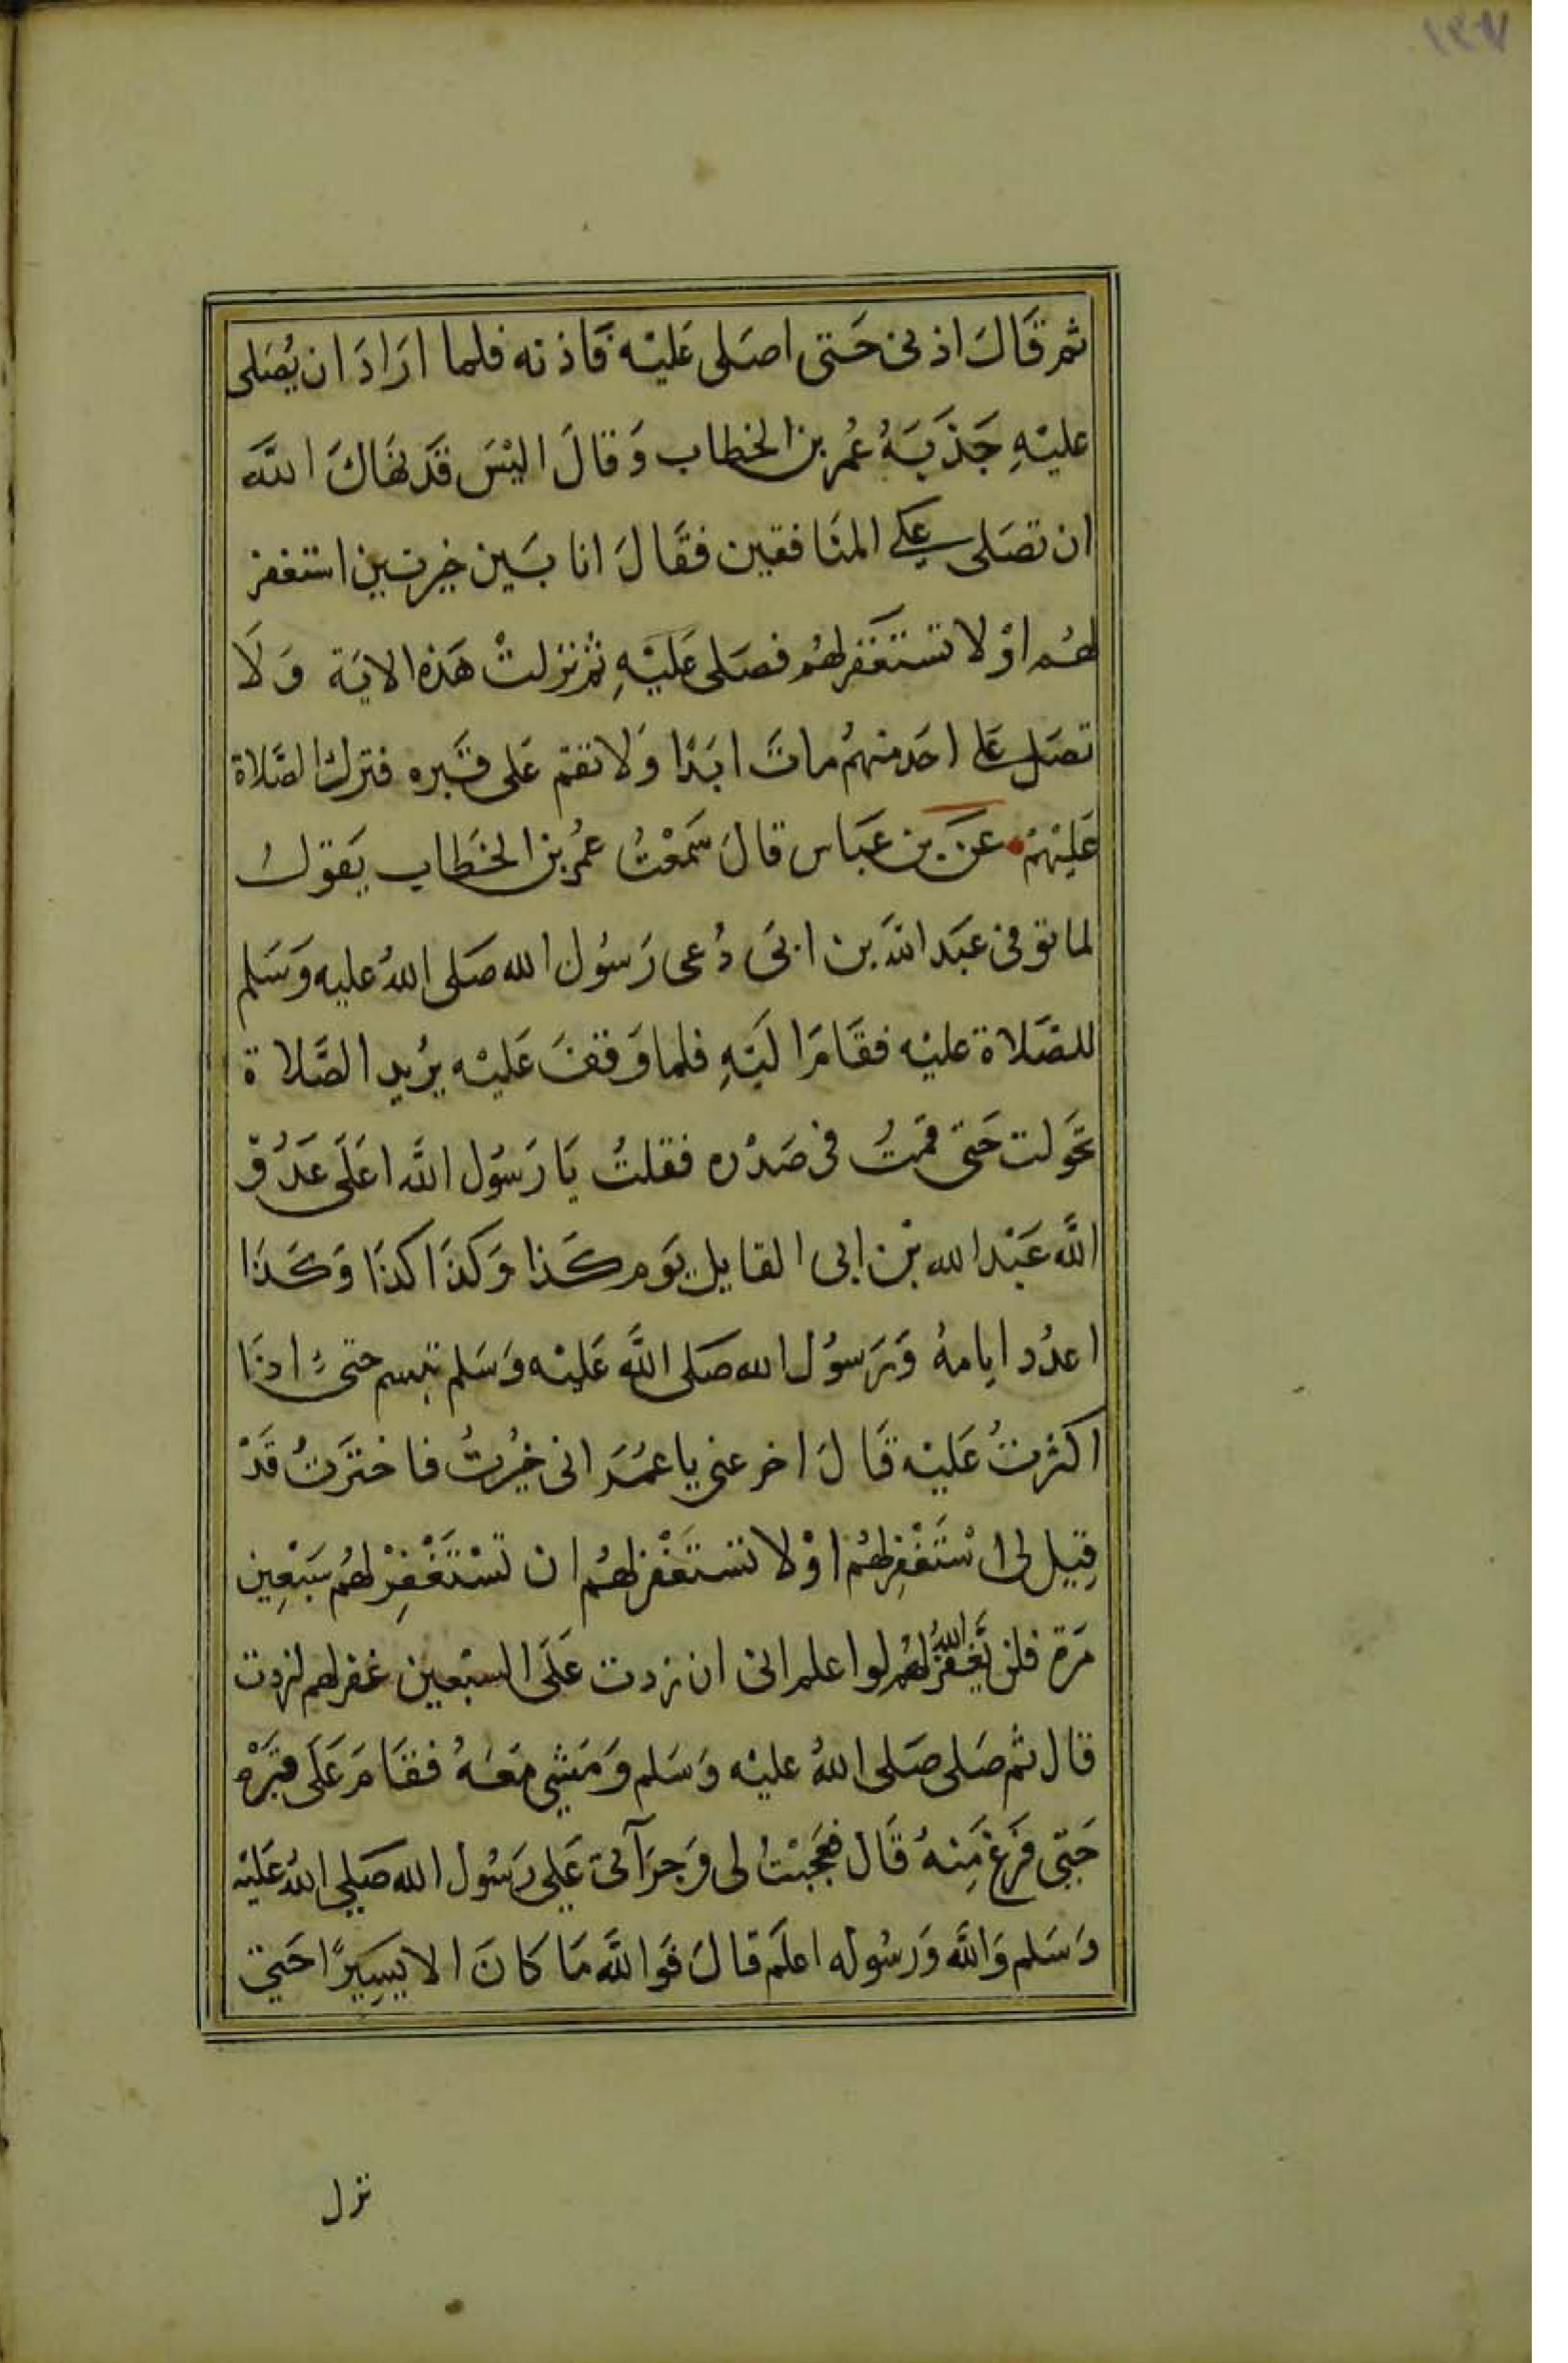 ١٣٧
ثم قَالَ اذنى حَتى اصَلى عَليْه فَاذنه فلما ارَادَ ان يُصَلى
عليْهِ جَذَبَهُ عُمر بن الخطاب وَقالَ اليْسَ قَد نهَاكَ اللَّه
ان تصَلى على المنَافقين فقَالَ انا بَين خيرتين استغفر
لهُم اوْ لا تستَغفر لهُم فصَلى عَليْهِ ثم نزلتْ هَذه الايَة وَلَا
تصَل على احَد منهمُ ماتَ ابَدًا وَلا تقم عَلى قَبره فترك الصَّلاة
عَليْهمْ عَن بن عَبَاس قالَ سَمعْتُ عمُر بن الخَطاب يَقولُ
لما توفى عبَد اللَّه بن ابىَ دُعى رَسُول الله صَلى اللهُ عليه وَسَلم
للصَّلاة عليْه فقَامَ اليَهِ فلما وَقفَ عَليْه يرُيد الصَّلاة
تحَولت حَتى قمَتُ فى صَدْره فقلتُ يَا رَسُول اللَّه اعَلَى عَدُوّ
اللَّه عَبْد الله بْن ابى القايل يَوم كَذا وَكذَا كذَا وَكَذَا
اعدُد ايامهُ وَرَسوُل الله صَلى اللَّه عَليْه وَسَلم تبسم حتىَ اذَا
اكثرتُ عَليْه قَالَ اخر عنى يا عمُرَ انى خيُرتُ فاختَرتُ قَدْ
قِيل لى اسْتَغْفِر لهُمْ اوْ لا تستَغْفر لهُم ان تَسْتَغْفِرْ لهُم سَبْعِين
مَرة فلن يَّغفرَ اللهُ لهُم لو اعلم انى ان زدت عَلَى السبْعين غفر لهم لزدت
قال ثم صَلى صَلى اللهُ عليْه وَسَلم وَمَشى مَعَهُ فقَامَ عَلَى قبَرْه
حَتّى فَرَغ مِنهُ قَال فعَجبْتُ لى وَجرَآتى عَلى رَسُول الله صَلى اللهُ عَليْه
وَسَلم وَاللَّه وَرَسُوله اعلَم قالَ فوَاللَّه مَا كانَ الا يَسِيرًا حَتى
نزل